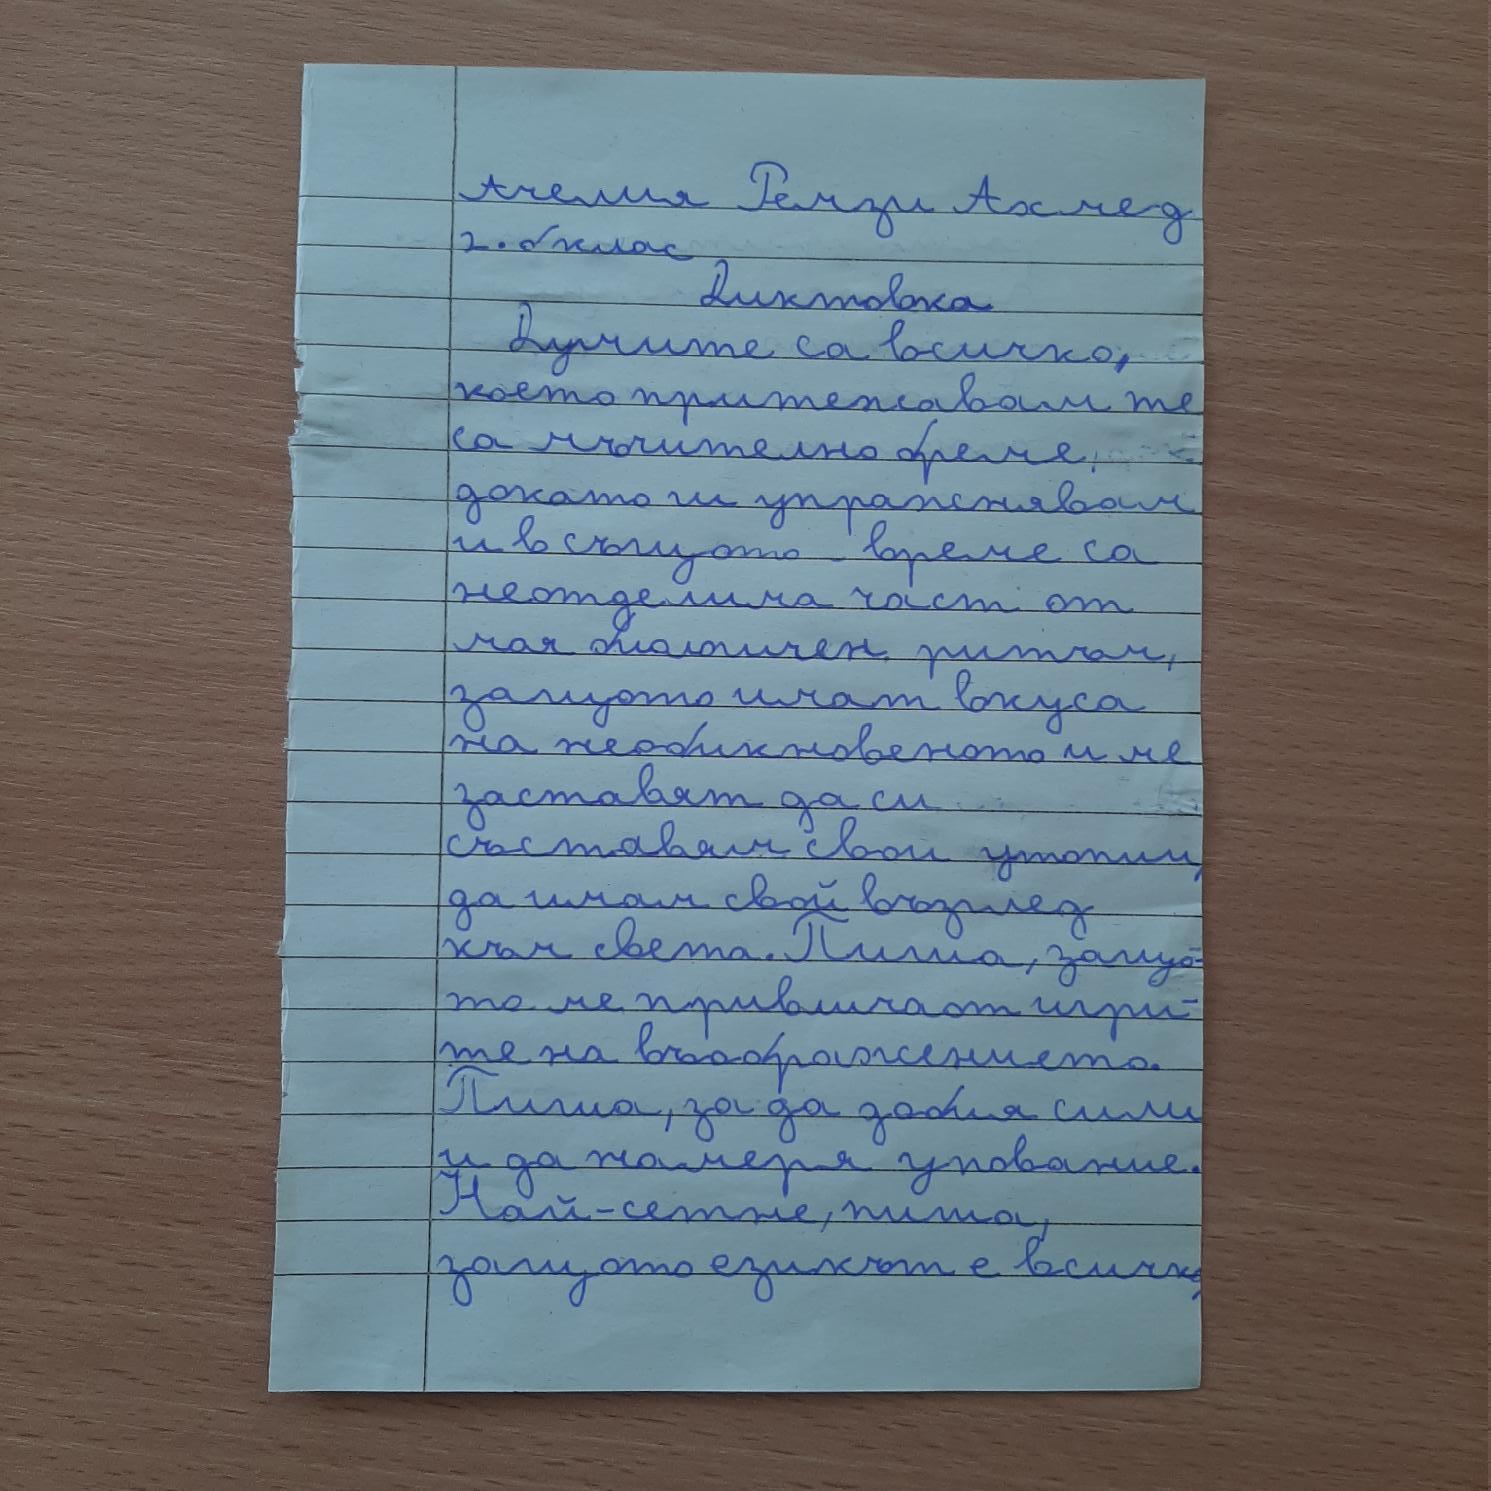 Ачелия Ремзи Ахмед
2. б клас
Диктовка
Думите са всичко,
което притежавам те
са мъчително бреме,
докато ги упражнявам
и в същото време са
неотделима част от
моя биологичен ритъм,
защото имат вкуса
на необикновеното и ме
заставят да си
съставям свои утопии,
да имам свой възглед
към света. Пиша, защо-
то ме привличат игри-
те на въображението.
Пиша, за да добия сили
и да намеря упование.
Най-сетне, пиша,
защото езикът е всичко,